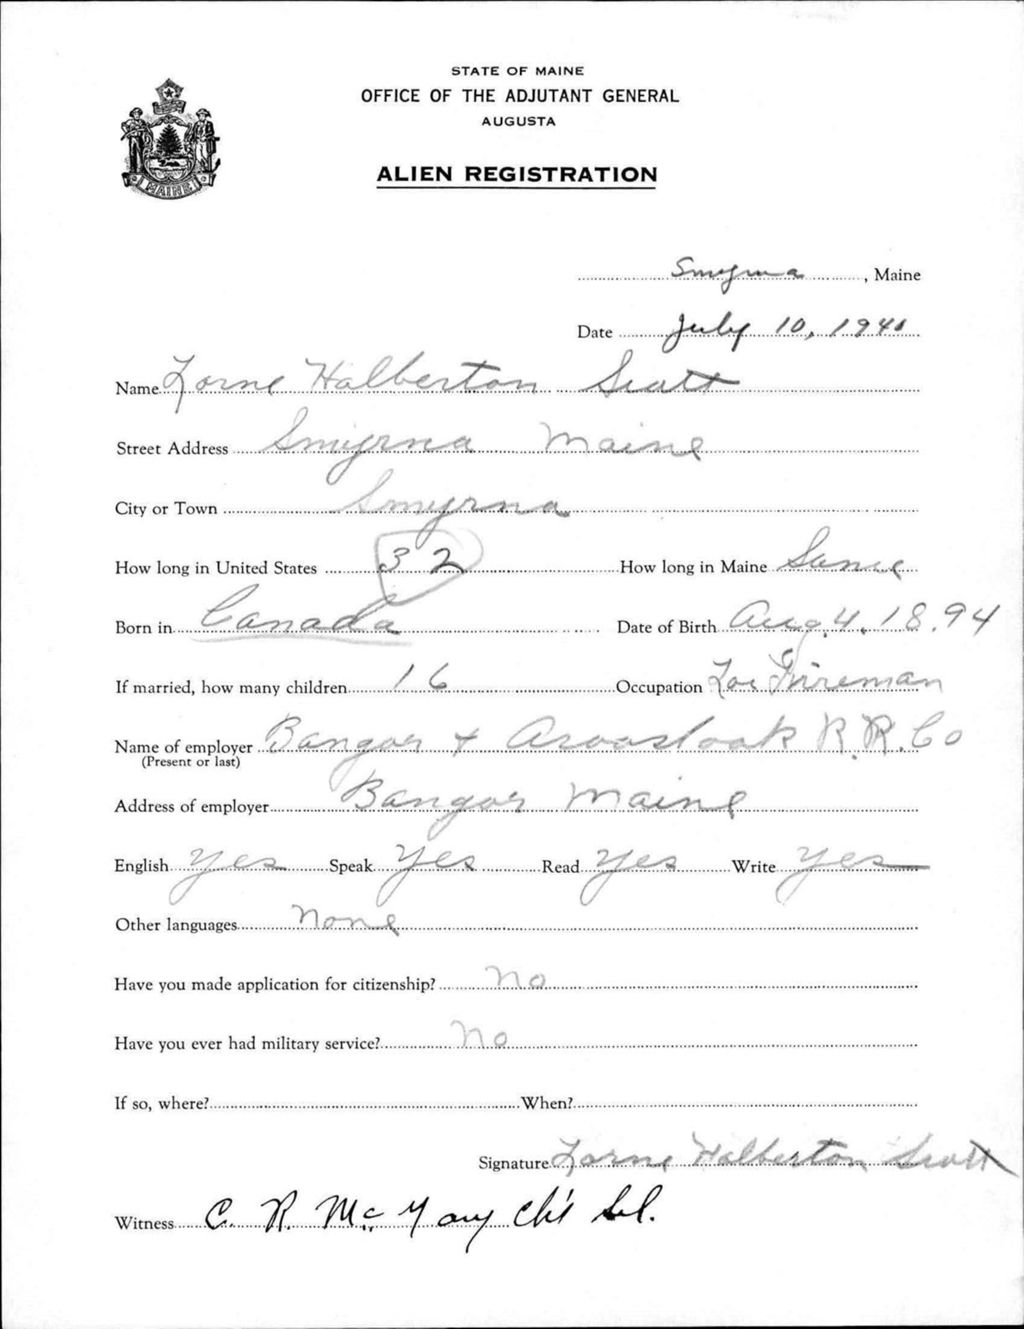 STATE OF MAINE
OFFICE OF THE ADJUTANT GENERAL
AUGUSTA
ALIEN REGISTRATION
MAINE
Smyrna, Maine
Date July 10, 1940
Name Lorne Halberton Scott
Street Address Smyrna Maine
City or Town Smyrna
How long in United States 32 How long in Maine Same
Born in Canada Date of Birth Aug, 4, 1894
If married, how many children 16 Occupation Loc Fireman
Name of employer Bangor + Aroostook R. R. Co
(Present or last)
Address of employer Bangor Maine
English Yes Speak Yes Read Yes Write Yes
Other languages None
Have you made application for citizenship? No
Have you ever had military service? No
If so, where? When?
Signature Lorne Halberton Scott
Witness C. R. Mc